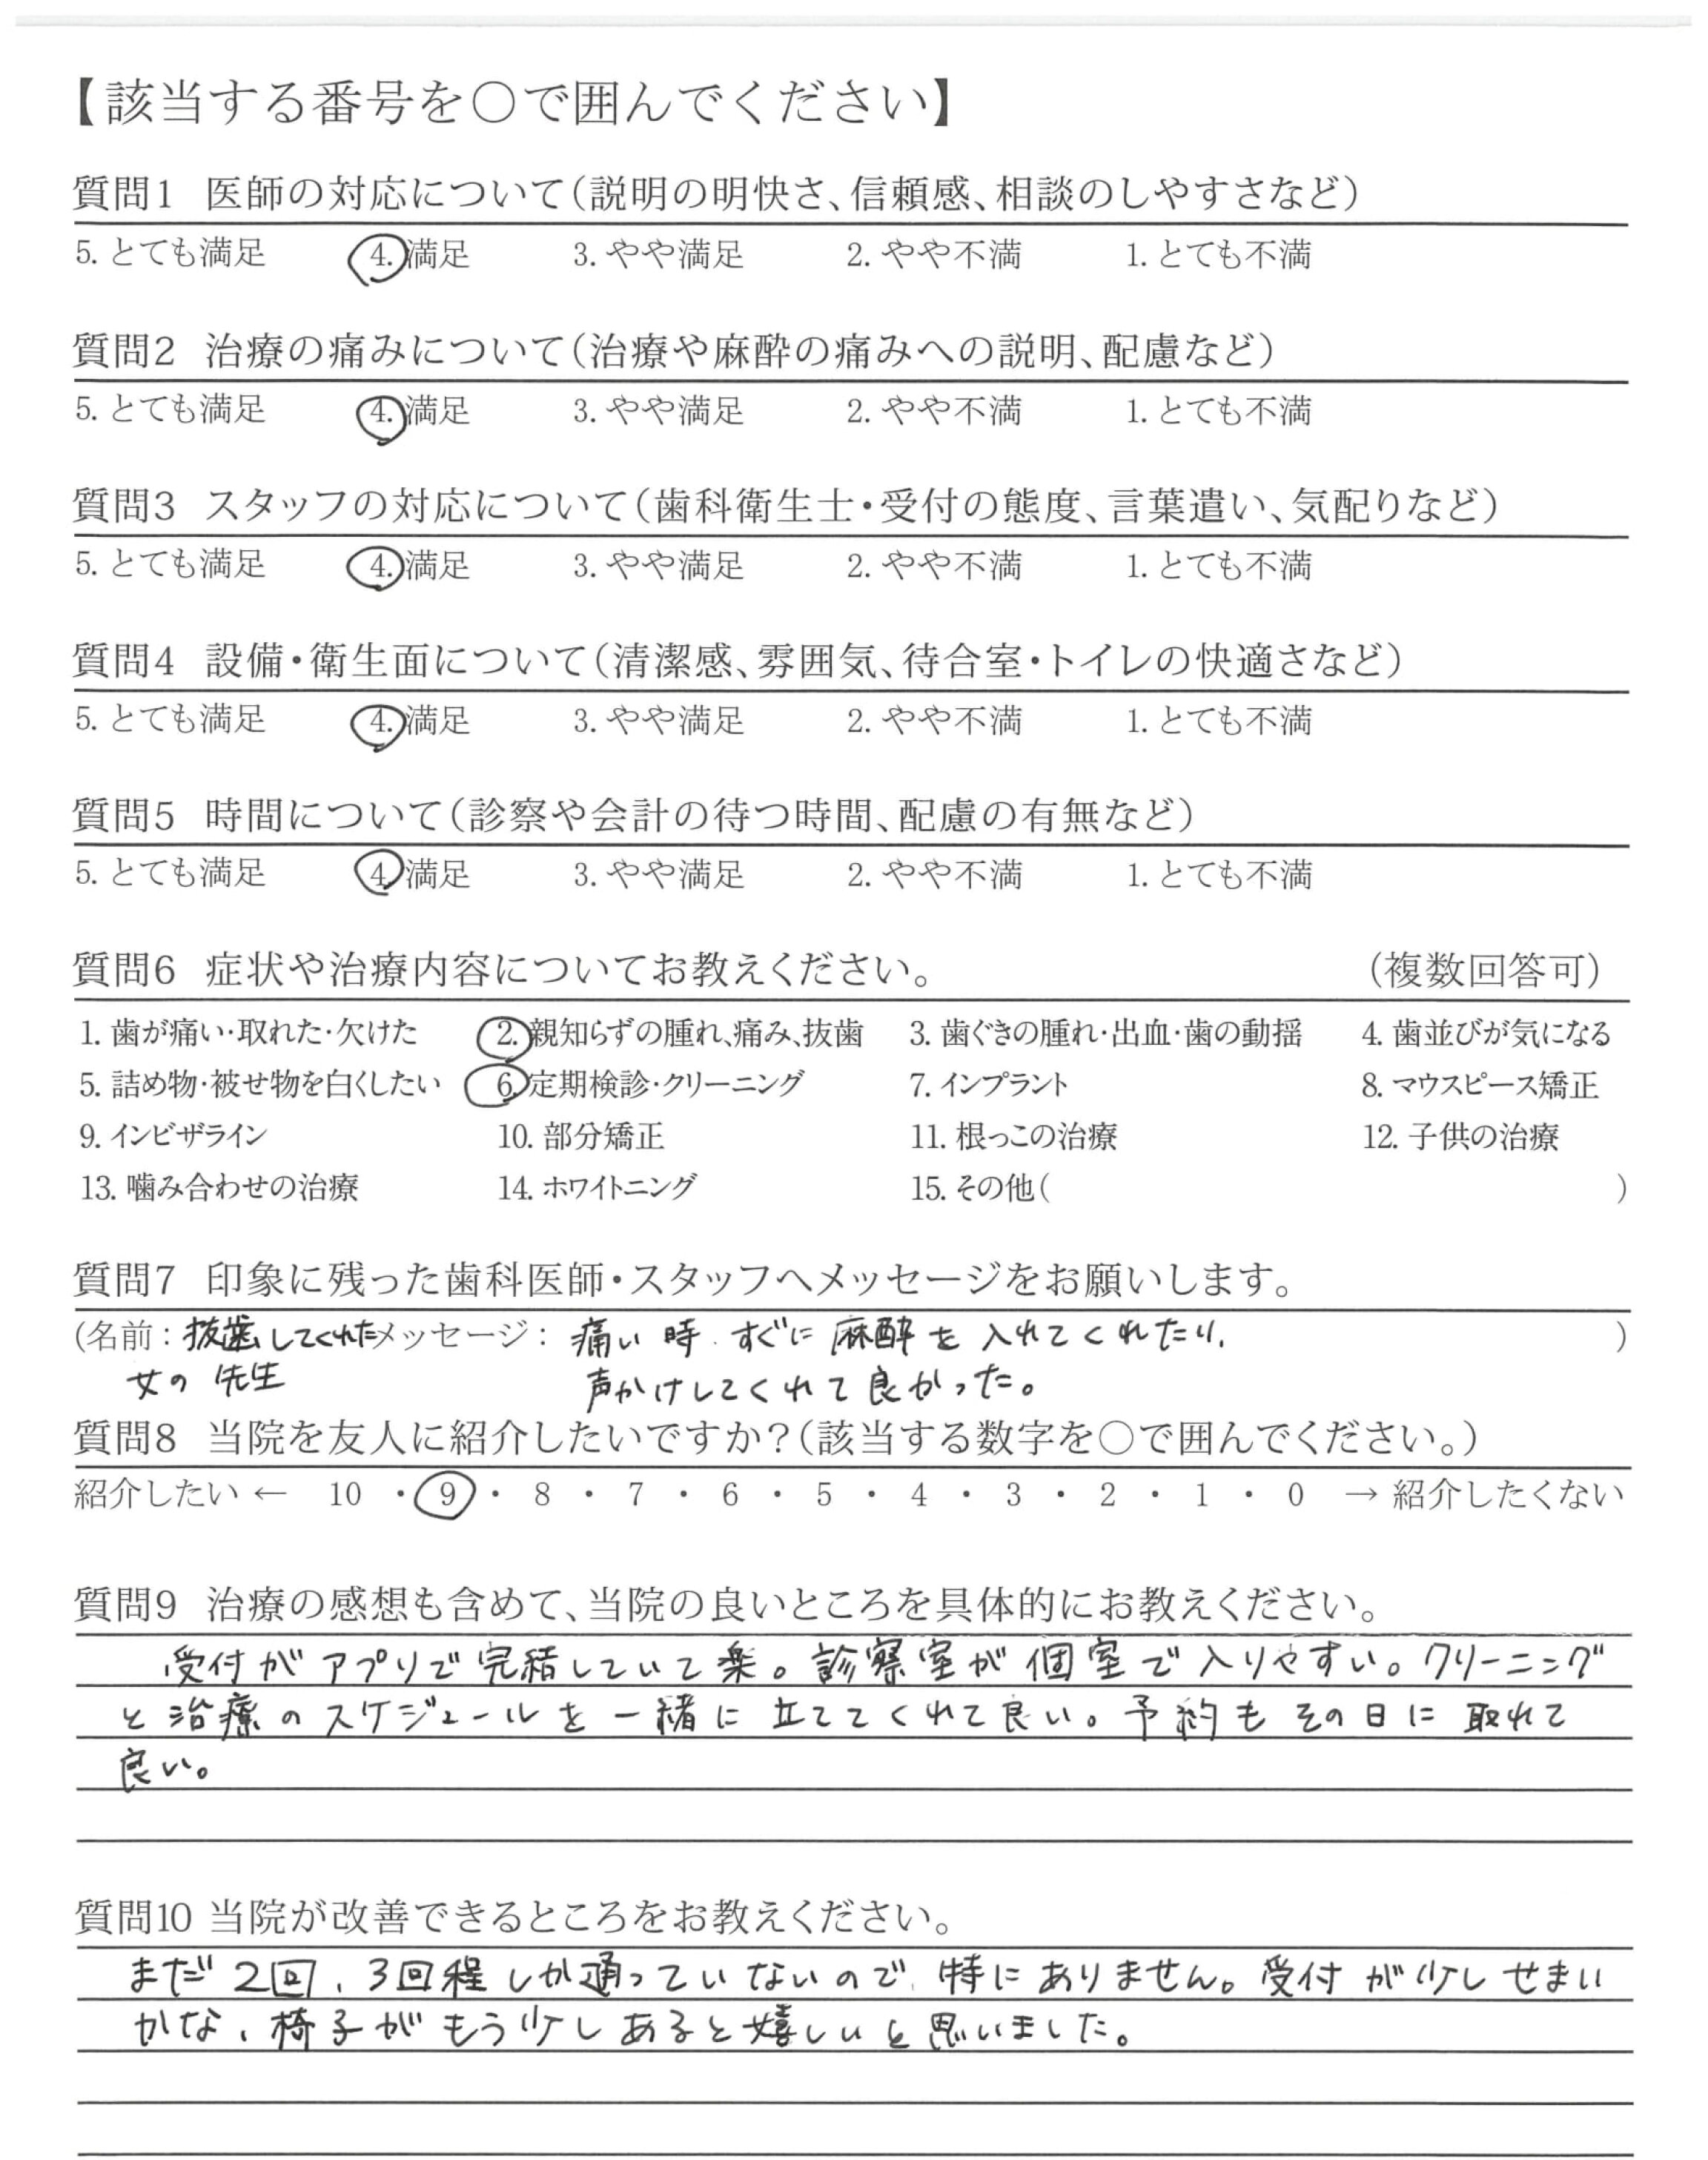 【該当する番号を○で囲んでください】
質問1 医師の対応について(説明の明快さ、信頼感、相談のしやすさなど)
5. とても満足 4. 満足 3. やや満足 2. やや不満 1. とても不満
質問2 治療の痛みについて(治療や麻酔の痛みへの説明、配慮など)
5. とても満足 4. 満足 3. やや満足 2. やや不満 1. とても不満
質問3 スタッフの対応について(歯科衛生士・受付の態度、言葉遣い、気配りなど)
5. とても満足 4. 満足 3. やや満足 2. やや不満 1. とても不満
質問4 設備・衛生面について(清潔感、雰囲気、待合室・トイレの快適さなど)
5. とても満足 4. 満足 3. やや満足 2. やや不満 1. とても不満
質問5 時間について(診察や会計の待つ時間、配慮の有無など)
5. とても満足 4. 満足 3. やや満足 2. やや不満 1. とても不満
質問6 症状や治療内容についてお教えください。 (複数回答可)
1. 歯が痛い・取れた・欠けた 2. 親知らずの腫れ、痛み、抜歯 3. 歯ぐきの腫れ・出血・歯の動揺 4. 歯並びが気になる
5. 詰め物・被せ物を白くしたい 6. 定期検診・クリーニング 7. インプラント 8. マウスピース矯正
9. インビザライン 10. 部分矯正 11. 根っこの治療 12. 子供の治療
13. 噛み合わせの治療 14. ホワイトニング 15. その他( )
質問7 印象に残った歯科医師・スタッフへメッセージをお願いします。
(名前：抜歯してくれた メッセージ：痛い時、すぐに麻酔を入れてくれたり、 )
女の先生 声かけしてくれて良かった。
質問8 当院を友人に紹介したいですか？(該当する数字を○で囲んでください。)
紹介したい ← 10 ・ 9 ・ 8 ・ 7 ・ 6 ・ 5 ・ 4 ・ 3 ・ 2 ・ 1 ・ 0 → 紹介したくない
質問9 治療の感想も含めて、当院の良いところを具体的にお教えください。
受付がアプリで完結していて楽。診察室が個室で入りやすい。クリーニング
と治療のスケジュールを一緒に立ててくれて良い。予約もその日に取れて
良い。
質問10 当院が改善できるところをお教えください。
まだ2回、3回程しか通っていないので、特にありません。受付が少しせまい
かな、椅子がもう少しあると嬉しいと思いました。